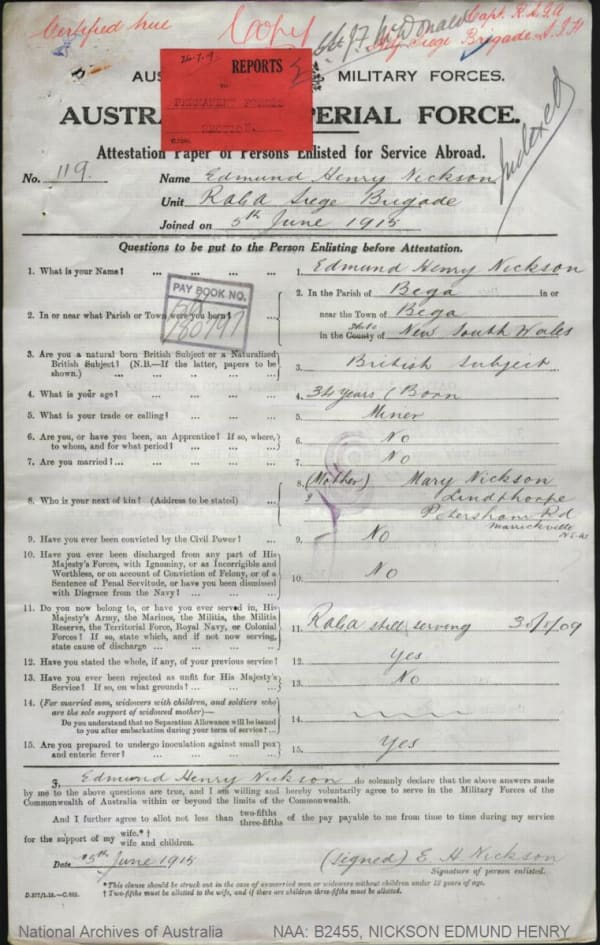 Certified true
Copy
J7 McDonald Capt. R.A.G.A
Siege Brigade A.I.F
Indexed
26.7.19
REPORTS
TO
PERMANENT FORCES
SECTION.
AUS MILITARY FORCES.
AUSTRA PERIAL FORCE.
Attestation Paper of Persons Enlisted for Service Abroad.
No. 119. Name Edmund Henry Nickson
Unit RAGA Siege Brigade
Joined on 5th June 1915
Questions to be put to the Person Enlisting before Attestation.
1. What is your Name? ... ... ... ... 1. Edmund Henry Nickson
PAY BOOK NO.
180797
2. In or near what Parish or Town were you born? 2. In the Parish of Bega in or
near the Town of Bega
in the County of State New South Wales
3. Are you a natural born British Subject or a Naturalized British Subject? (N.B.—If the latter, papers to be shown.) ... 3. British Subject
4. What is your age? ... ... ... ... 4. 34 years (Born
5. What is your trade or calling? ... ... ... 5. Miner
6. Are you, or have you been, an Apprentice? If so, where, to whom, and for what period? ... ... 6. No
7. Are you married?... ... ... ... ... 7. No
8. Who is your next of kin? (Address to be stated) ... 8. (Mother) Mary Nickson
Lindthorpe
Petersham Rd
Marrickville
N.S.W
9. Have you ever been convicted by the Civil Power? ... 9. No
10. Have you ever been discharged from any part of His Majesty's Forces, with Ignominy, or as Incorrigible and Worthless, or on account of Conviction of Felony, or of a Sentence of Penal Servitude, or have you been dismissed with Disgrace from the Navy? ... 10. No
11. Do you now belong to, or have you ever served in, His Majesty's Army, the Marines, the Militia, the Militia Reserve, the Territorial Force, Royal Navy, or Colonial Forces? If so, state which, and if not now serving, state cause of discharge ... ... ... 11. RAGA still serving /09
12. Have you stated the whole, if any, of your previous service? 12. Yes
13. Have you ever been rejected as unfit for His Majesty's Service? If so, on what grounds? ... ... 13. No
14. (For married men, widowers with children, and soldiers who are the sole support of widowed mother)—
Do you understand that no Separation Allowance will be issued to you after embarkation during your term of service? ... 14.
15. Are you prepared to undergo inoculation against small pox and enteric fever? ... ... ... 15. Yes
I, Edmund Henry Nickson do solemnly declare that the above answers made
by me to the above questions are true, and I am willing and hereby voluntarily agree to serve in the Military Forces of the
Commonwealth of Australia within or beyond the limits of the Commonwealth.
And I further agree to allot not less than two-fifths three-fifths of the pay payable to me from time to time during my service
for the support of my wife.*† wife and children.
Date 5th June 1915 (signed) E. H. Nickson
Signature of person enlisted.
* This clause should be struck out in the case of unmarried men or widowers without children under 18 years of age.
† Two-fifths must be allotted to the wife, and if there are children three-fifths must be allotted.
National Archives of Australia NAA: B2455, NICKSON EDMUND HENRY